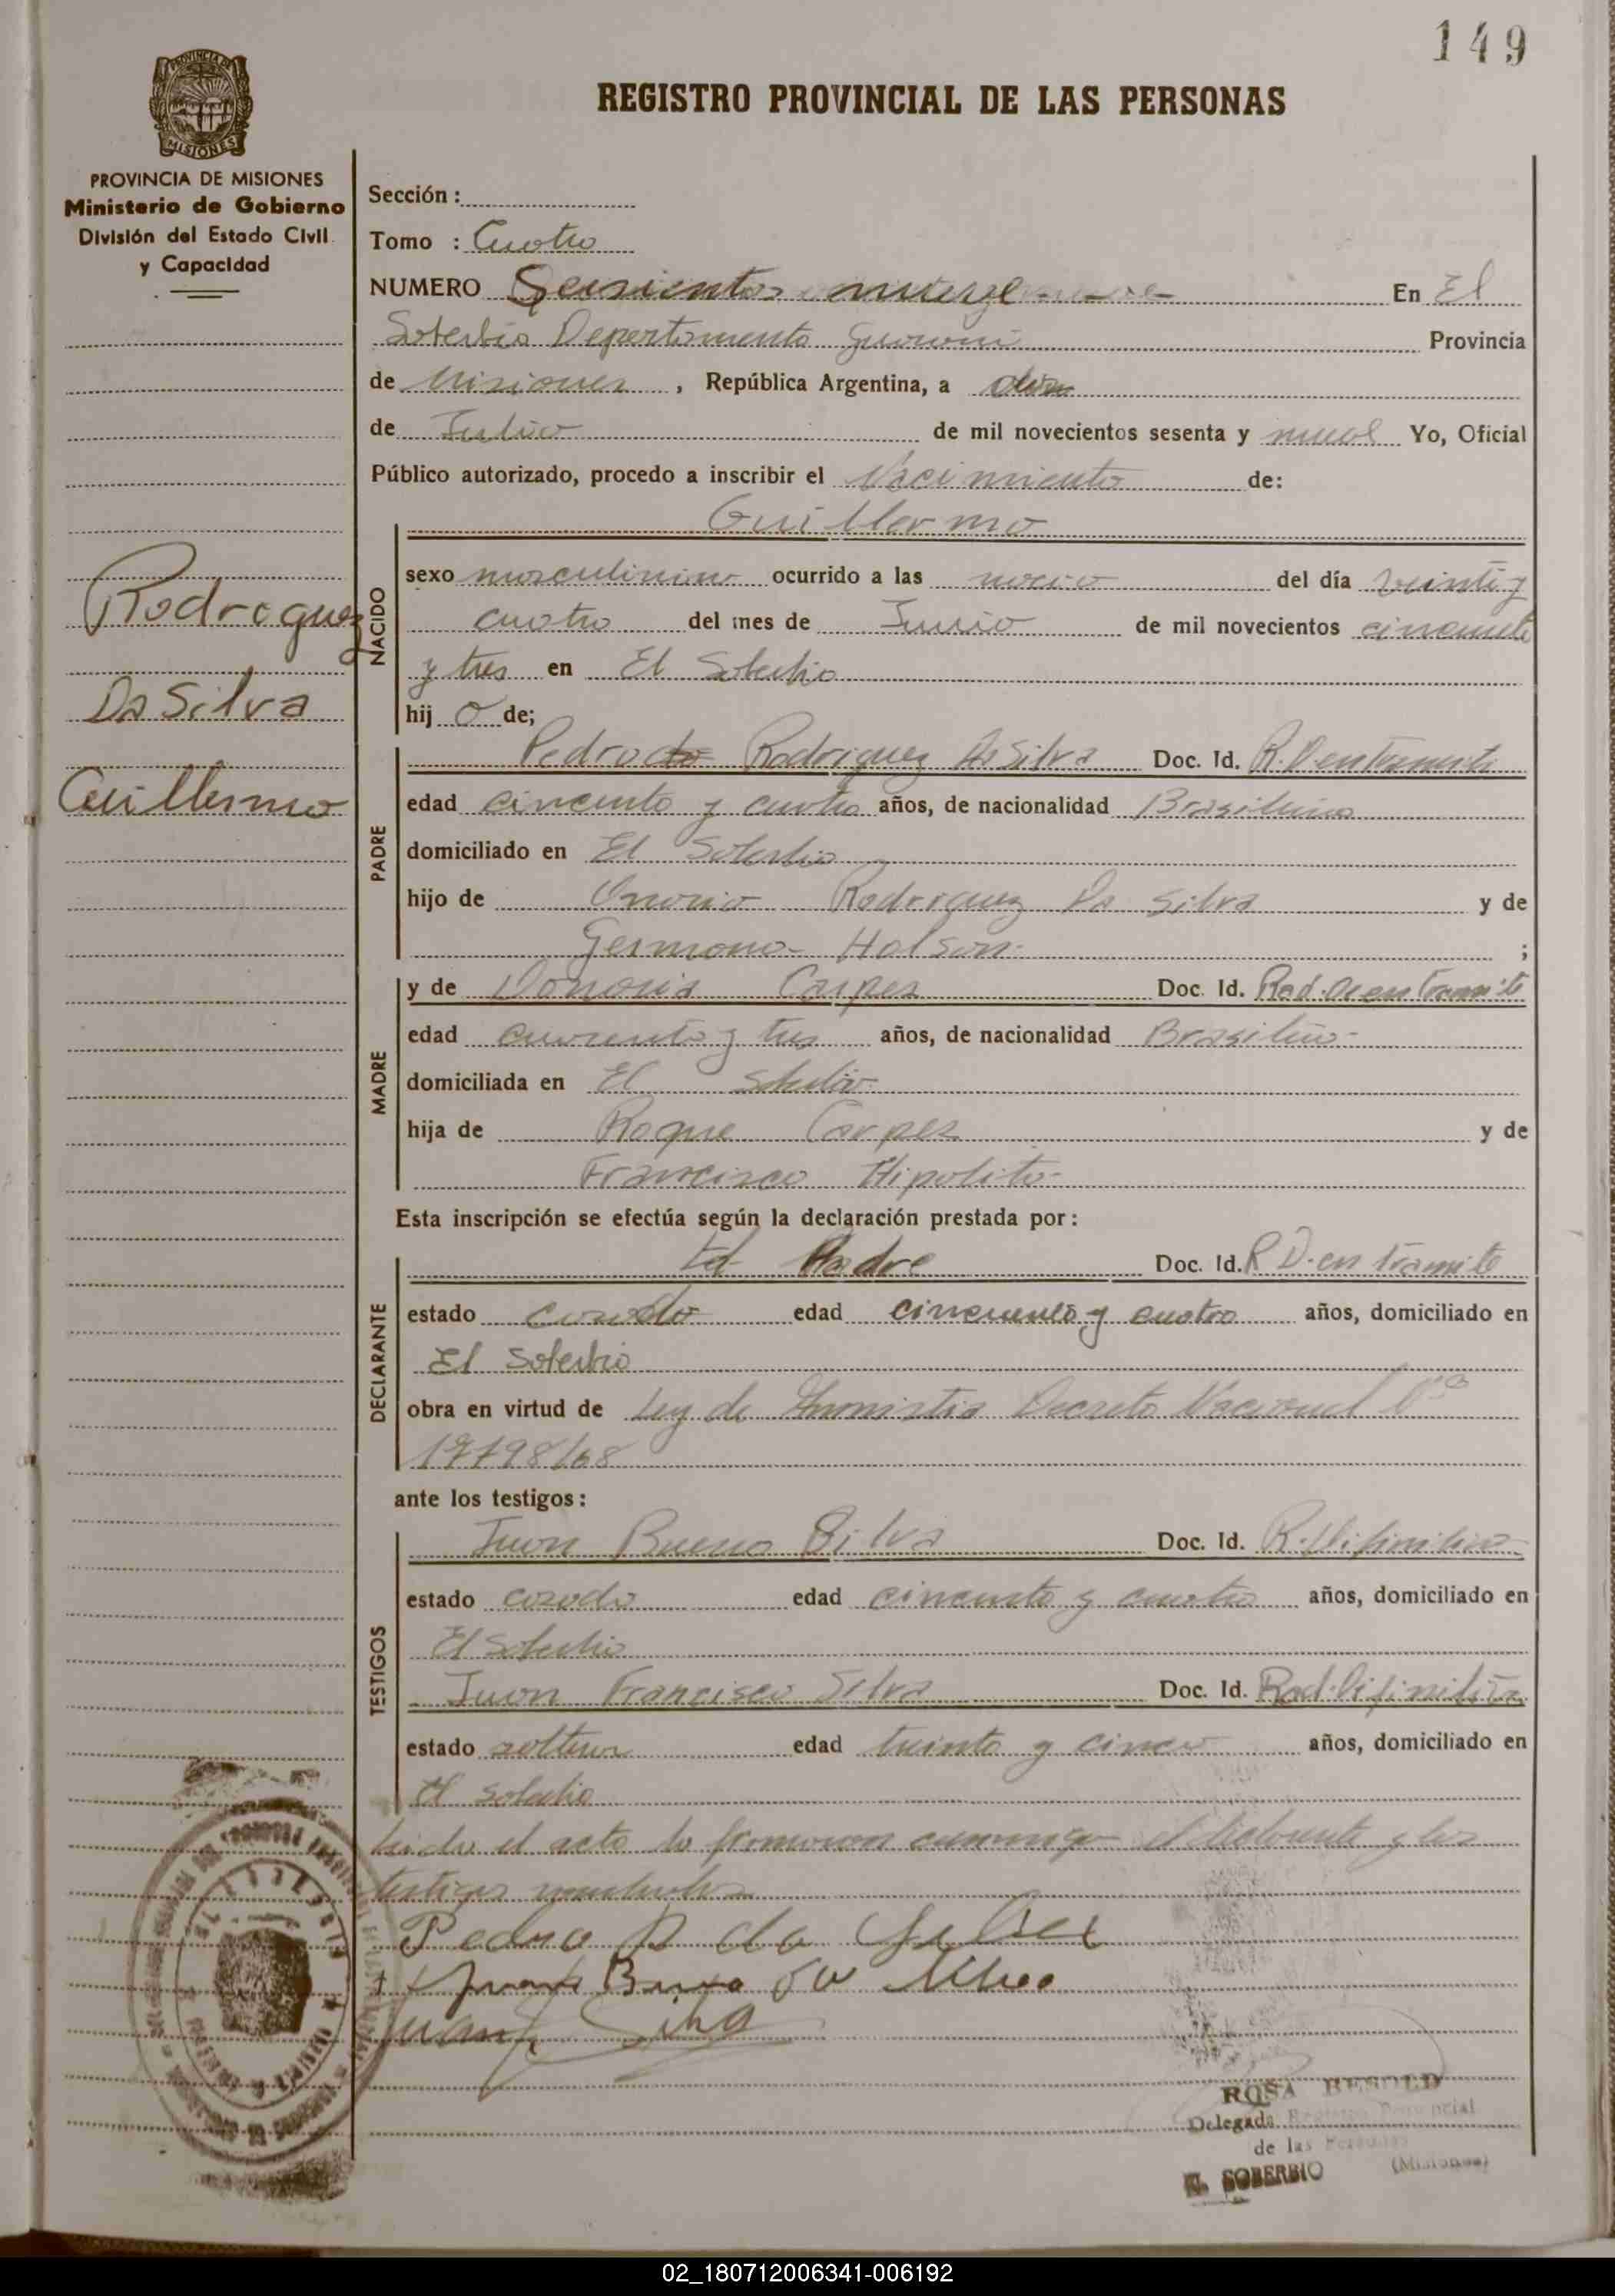 149
REGISTRO PROVINCIAL DE LAS PERSONAS
PROVINCIA DE MISIONES
PROVINCIA DE MISIONES
Ministerio de Gobierno
División del Estado Civil
y Capacidad
Sección :
Tomo : Cuatro
NUMERO En El
Soberbio Departamento Guarani Provincia
de Misiones , República Argentina, a
de Julio de mil novecientos sesenta y nueve Yo, Oficial
Público autorizado, procedo a inscribir el Nacimiento de:
Guillermo
NACIDO
sexo masculinino ocurrido a las del día veinti y
cuatro del mes de Junio de mil novecientos cincuenta
y tres en El Soberbio
hij o de;
Rodroguez
Da Silva
Guillermo
PADRE
Pedro Rodriguez Da Silva Doc. Id. R. D en tramite
edad cincuenta y cuatro años, de nacionalidad Brasileña
domiciliado en El Soberbio
hijo de Rodriguez Da Silva y de
Germana Halson ;
MADRE
y de Carpes Doc. Id. en tramite
edad cuarenta y tres años, de nacionalidad Brasileña
domiciliada en El Soberbio
hija de Roque Carpes y de
Francisca Hipolito
Esta inscripción se efectúa según la declaración prestada por:
DECLARANTE
El Padre Doc. Id. R D. en tramite
estado casado edad cincuenta y cuatro años, domiciliado en
El Soberbio
obra en virtud de Ley de Amnistia Decreto Nacional Nº
/68
ante los testigos:
TESTIGOS
Juan Bueno Silva Doc. Id.
estado casado edad cincuenta y cuatro años, domiciliado en
El Soberbio
Juan Francisco Silva Doc. Id.
estado soltero edad treinta y cinco años, domiciliado en
El Soberbio
el acto lo firmaron conmigo el declarante y los
testigos
Pedro R da Silva
Juan F Silva
ROSA BESOLD
Delegada Registro Provincial
de las Personas
EL SOBERBIO (Misiones)
02_180712006341-006192